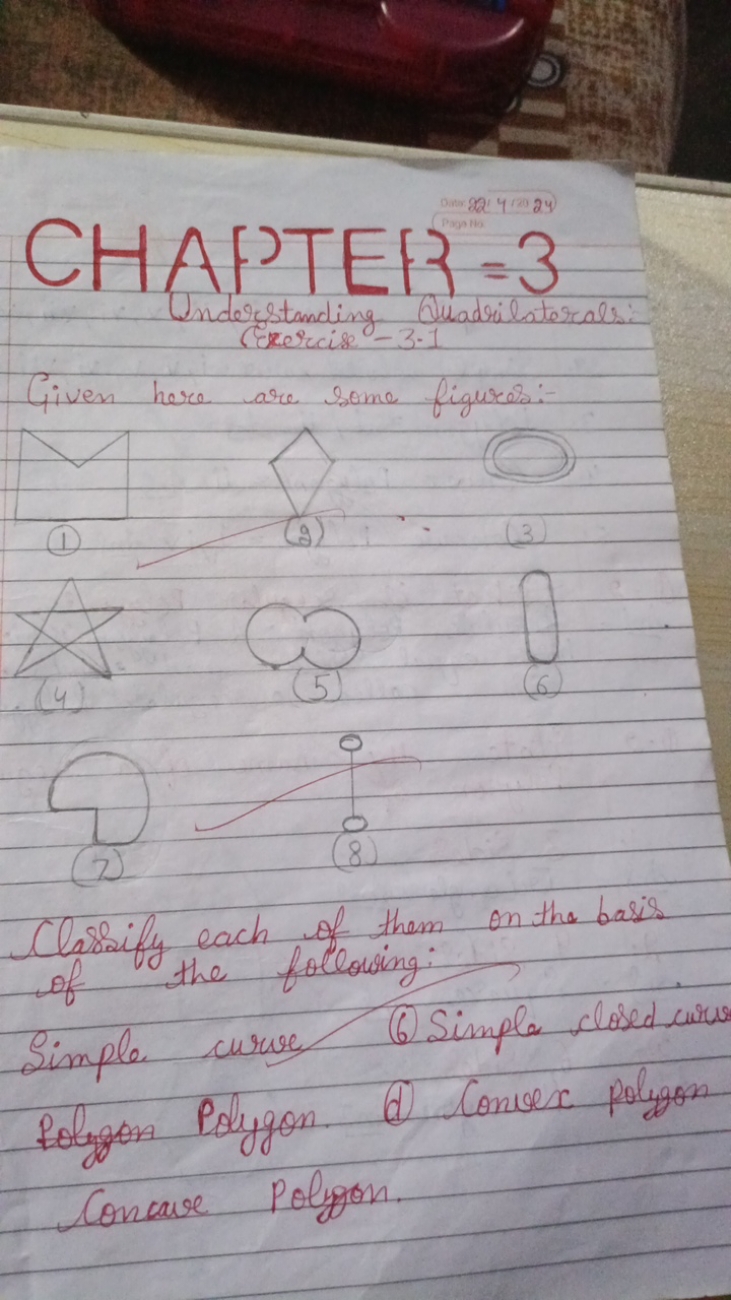 Date: 22/4/2024
Page No.
CHAPTER = 3
Understanding Quadrilaterals:
Exercise - 3.1
Given here are some figures:-
1 (2) (3)
(4) (5) (6)
(7) (8)
Classify each of them on the basis
of the following:
Simple curve (b) Simple closed curve
Polygon Polygon. (d) Convex polygon
Concave Polygon.